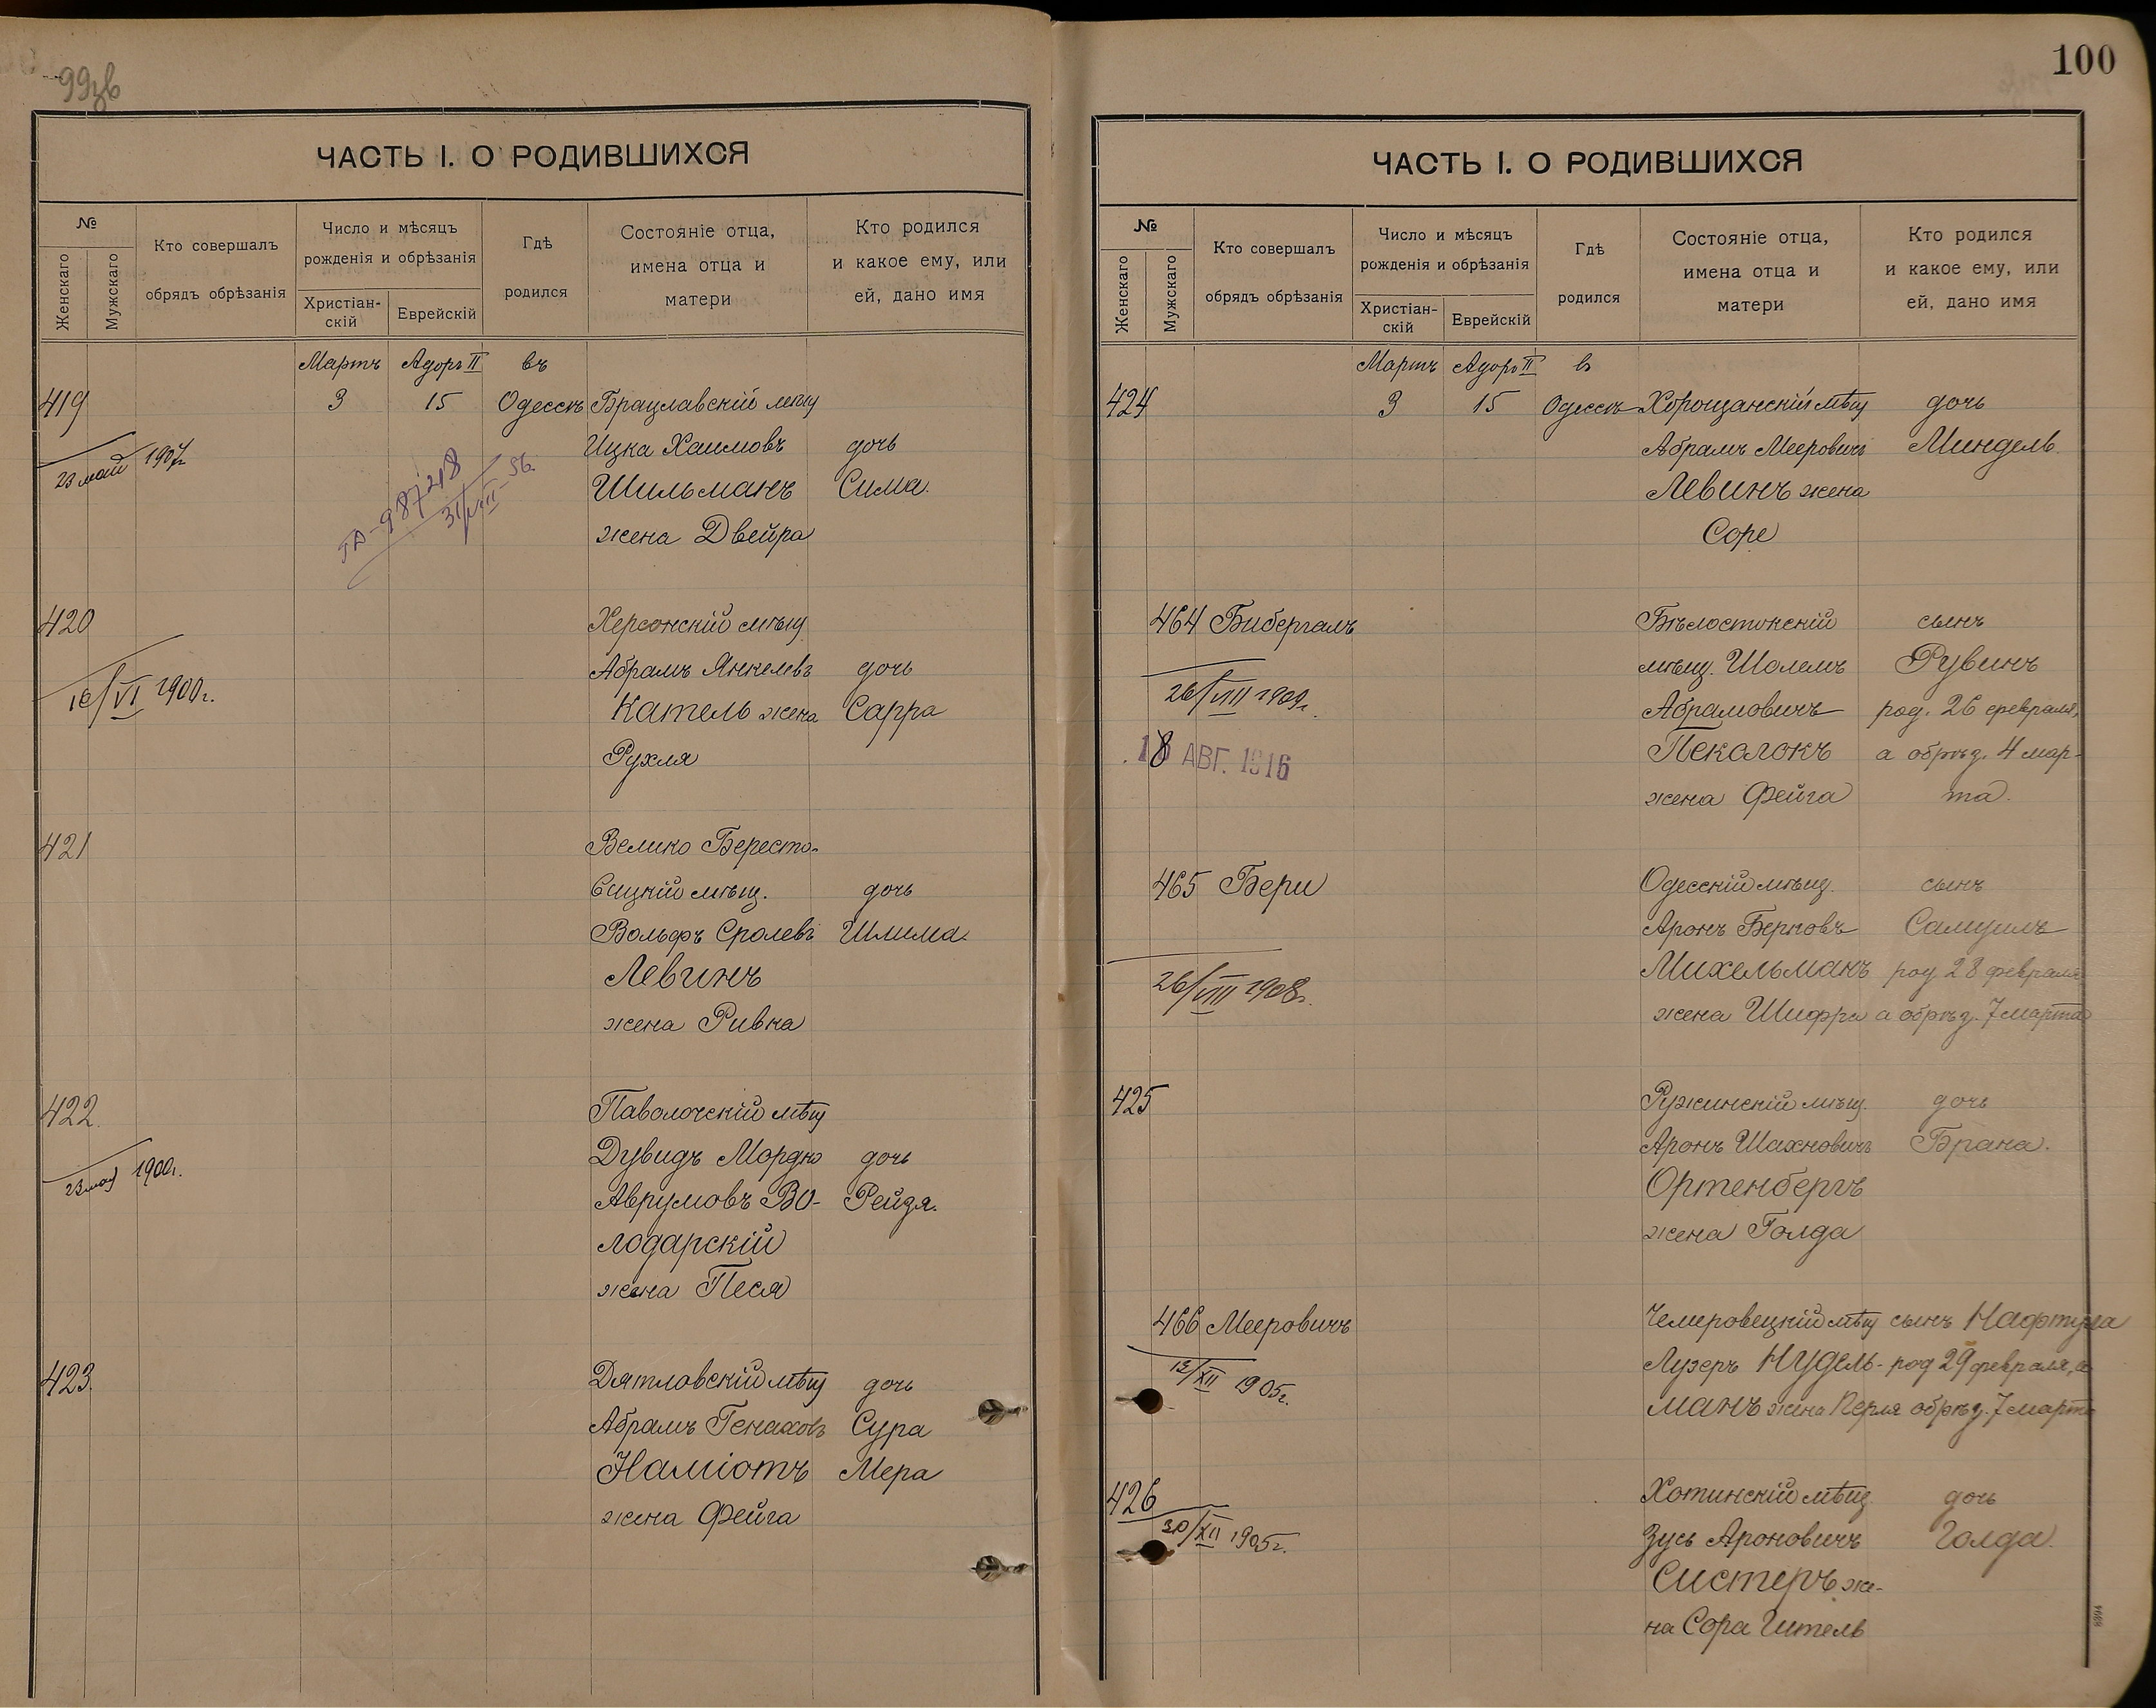 99зв
ЧАСТЬ I. О РОДИВШИХСЯ
№
Женскаго
Мужскаго
Кто совершалъ
обрядъ обрѣзанія
Число и мѣсяцъ
рожденія и обрѣзанія
Христіан-
скій
Еврейскій
Гдѣ
родился
Состояніе отца,
имена отца и
матери
Кто родился
и какое ему, или
ей, дано имя
Мартъ Адоръ II въ
419 3 15 Одессѣ Брацлавскій мѣщ
Ицка Хаимовъ дочь
Шильманъ Сима.
жена Двейра
23 май
31/VIII-56.
420 Херсонскій мѣщ
Абрамъ Янкелевъ дочь
Катель жена Сарра
Рухля
VI 1900г.
421 Велико Бересто-
вицкій мѣщ. дочь
Вольфъ Сролевъ Шлима.
Левинъ
жена Ривка
422. Паволочскій мѣщ
Дувидъ Мордко дочь
Аврумовъ Во- Рейзя.
лодарскій
жена Песя
23 май 1900г.
423. Дятловскій мѣщ дочь
Абрамъ Генаховъ Сура
Наміотъ Мера
жена Фейга
100
ЧАСТЬ I. О РОДИВШИХСЯ
№
Женскаго
Мужскаго
Кто совершалъ
обрядъ обрѣзанія
Число и мѣсяцъ
рожденія и обрѣзанія
Христіан-
скій
Еврейскій
Гдѣ
родился
Состояніе отца,
имена отца и
матери
Кто родился
и какое ему, или
ей, дано имя
Мартъ Адоръ II в
424 3 15 Одессѣ Хорощанскій мѣщ дочь
Абрамъ Мееровичъ Миндель.
Левинъ жена
Соре
464 Бибергалъ Бѣлостокскій сынъ
мѣщ. Шолемъ Рувинъ
26/VIII 1909г. Абрамовичъ род. 26 февраля,
18 АВГ. 1916 Пекалокъ а обрѣз. 4 мар-
жена Фейга та.
465 Бери Одесскій мѣщ. сынъ
Аронъ Берковъ Самуилъ
26/VIII 1908г. Михельманъ род 28 февраля
жена Шифра а обрѣз. 7 марта
425 Ружинскій мѣщ. дочь
Аронъ Шахновичъ Брана.
Ортенбергъ
жена Голда
466 Мееровичъ Чемеровецкій мѣщ сынъ Нафтула
Лузеръ Нудель- род 29 февраля, а
XII 1905г. манъ жена Перля обрѣз. 7 марта
426 Хотинскій мѣщ дочь
30/XII 1905г. Зусь Ароновичъ Голда.
Систеръ же-
на Сора Ител��
8394